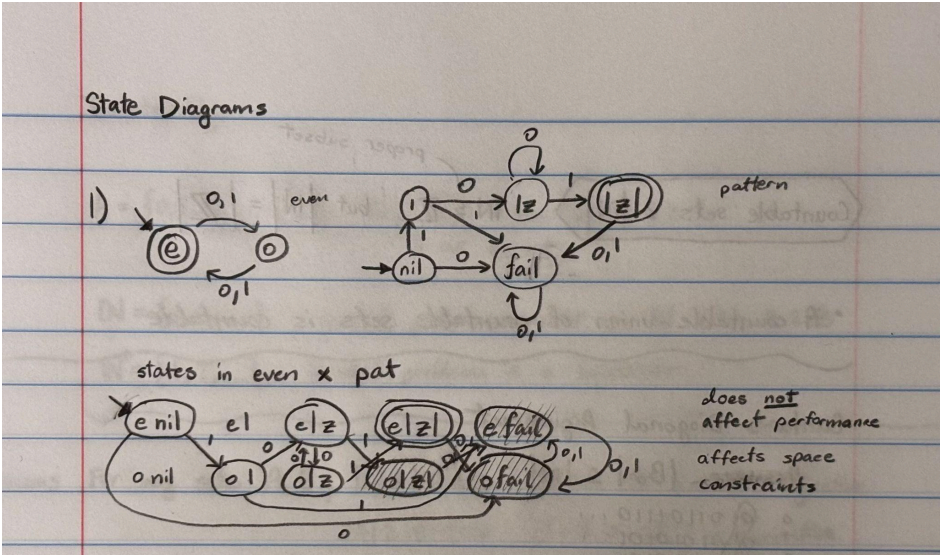 State Diagrams
1)
0,1
even
e
o
0,1
1
0
1z
0
1
1z1
pattern
1
1
nil
0
fail
0,1
0,1
states in even x pat
e nil
e1
e1z
e1z1
e fail
o nil
o1
o1z
o1z1
o fail
1
0
0
1
1
0,1
0
0,1
0,1
1
0
does not
affect performance
affects space
constraints